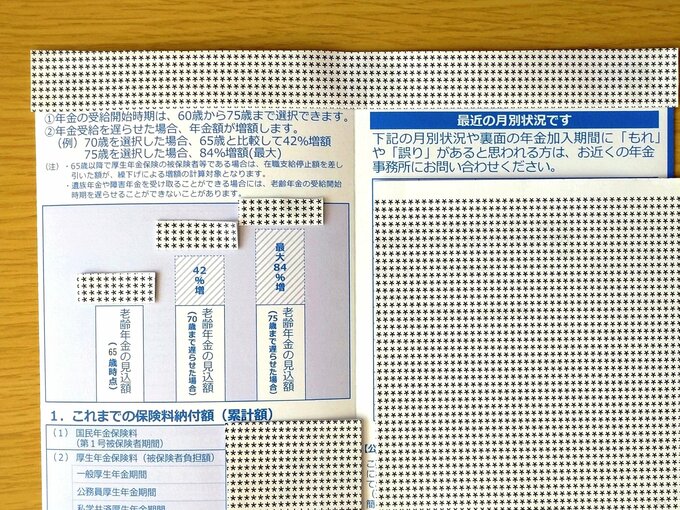 ①年金の受給開始時期は、60歳から75歳まで選択できます。
②年金受給を遅らせた場合、年金額が増額します。
(例) 70歳を選択した場合、65歳と比較して42%増額
75歳を選択した場合、84%増額(最大)
(注) ・65歳以降で厚生年金保険の被保険者等である場合は、在職支給停止額を差し
引いた額が、繰下げによる増額の計算対象となります。
・遺族年金や障害年金を受け取ることができる場合には、老齢年金の受給開始
時期を遅らせることができないことがあります。
老齢年金の見込額
(65歳時点)
42%増
老齢年金の見込額
(70歳まで遅らせた場合)
最大84%増
老齢年金の見込額
(75歳まで遅らせた場合)
1. これまでの保険料納付額 (累計額)
(1) 国民年金保険料
(第1号被保険者期間)
(2) 厚生年金保険料 (被保険者負担額)
一般厚生年金期間
公務員厚生年金期間
私学共済厚生年金期間
最近の月別状況です
下記の月別状況や裏面の年金加入期間に「もれ」
や「誤り」があると思われる方は、お近くの年金
事務所にお問い合わせください。